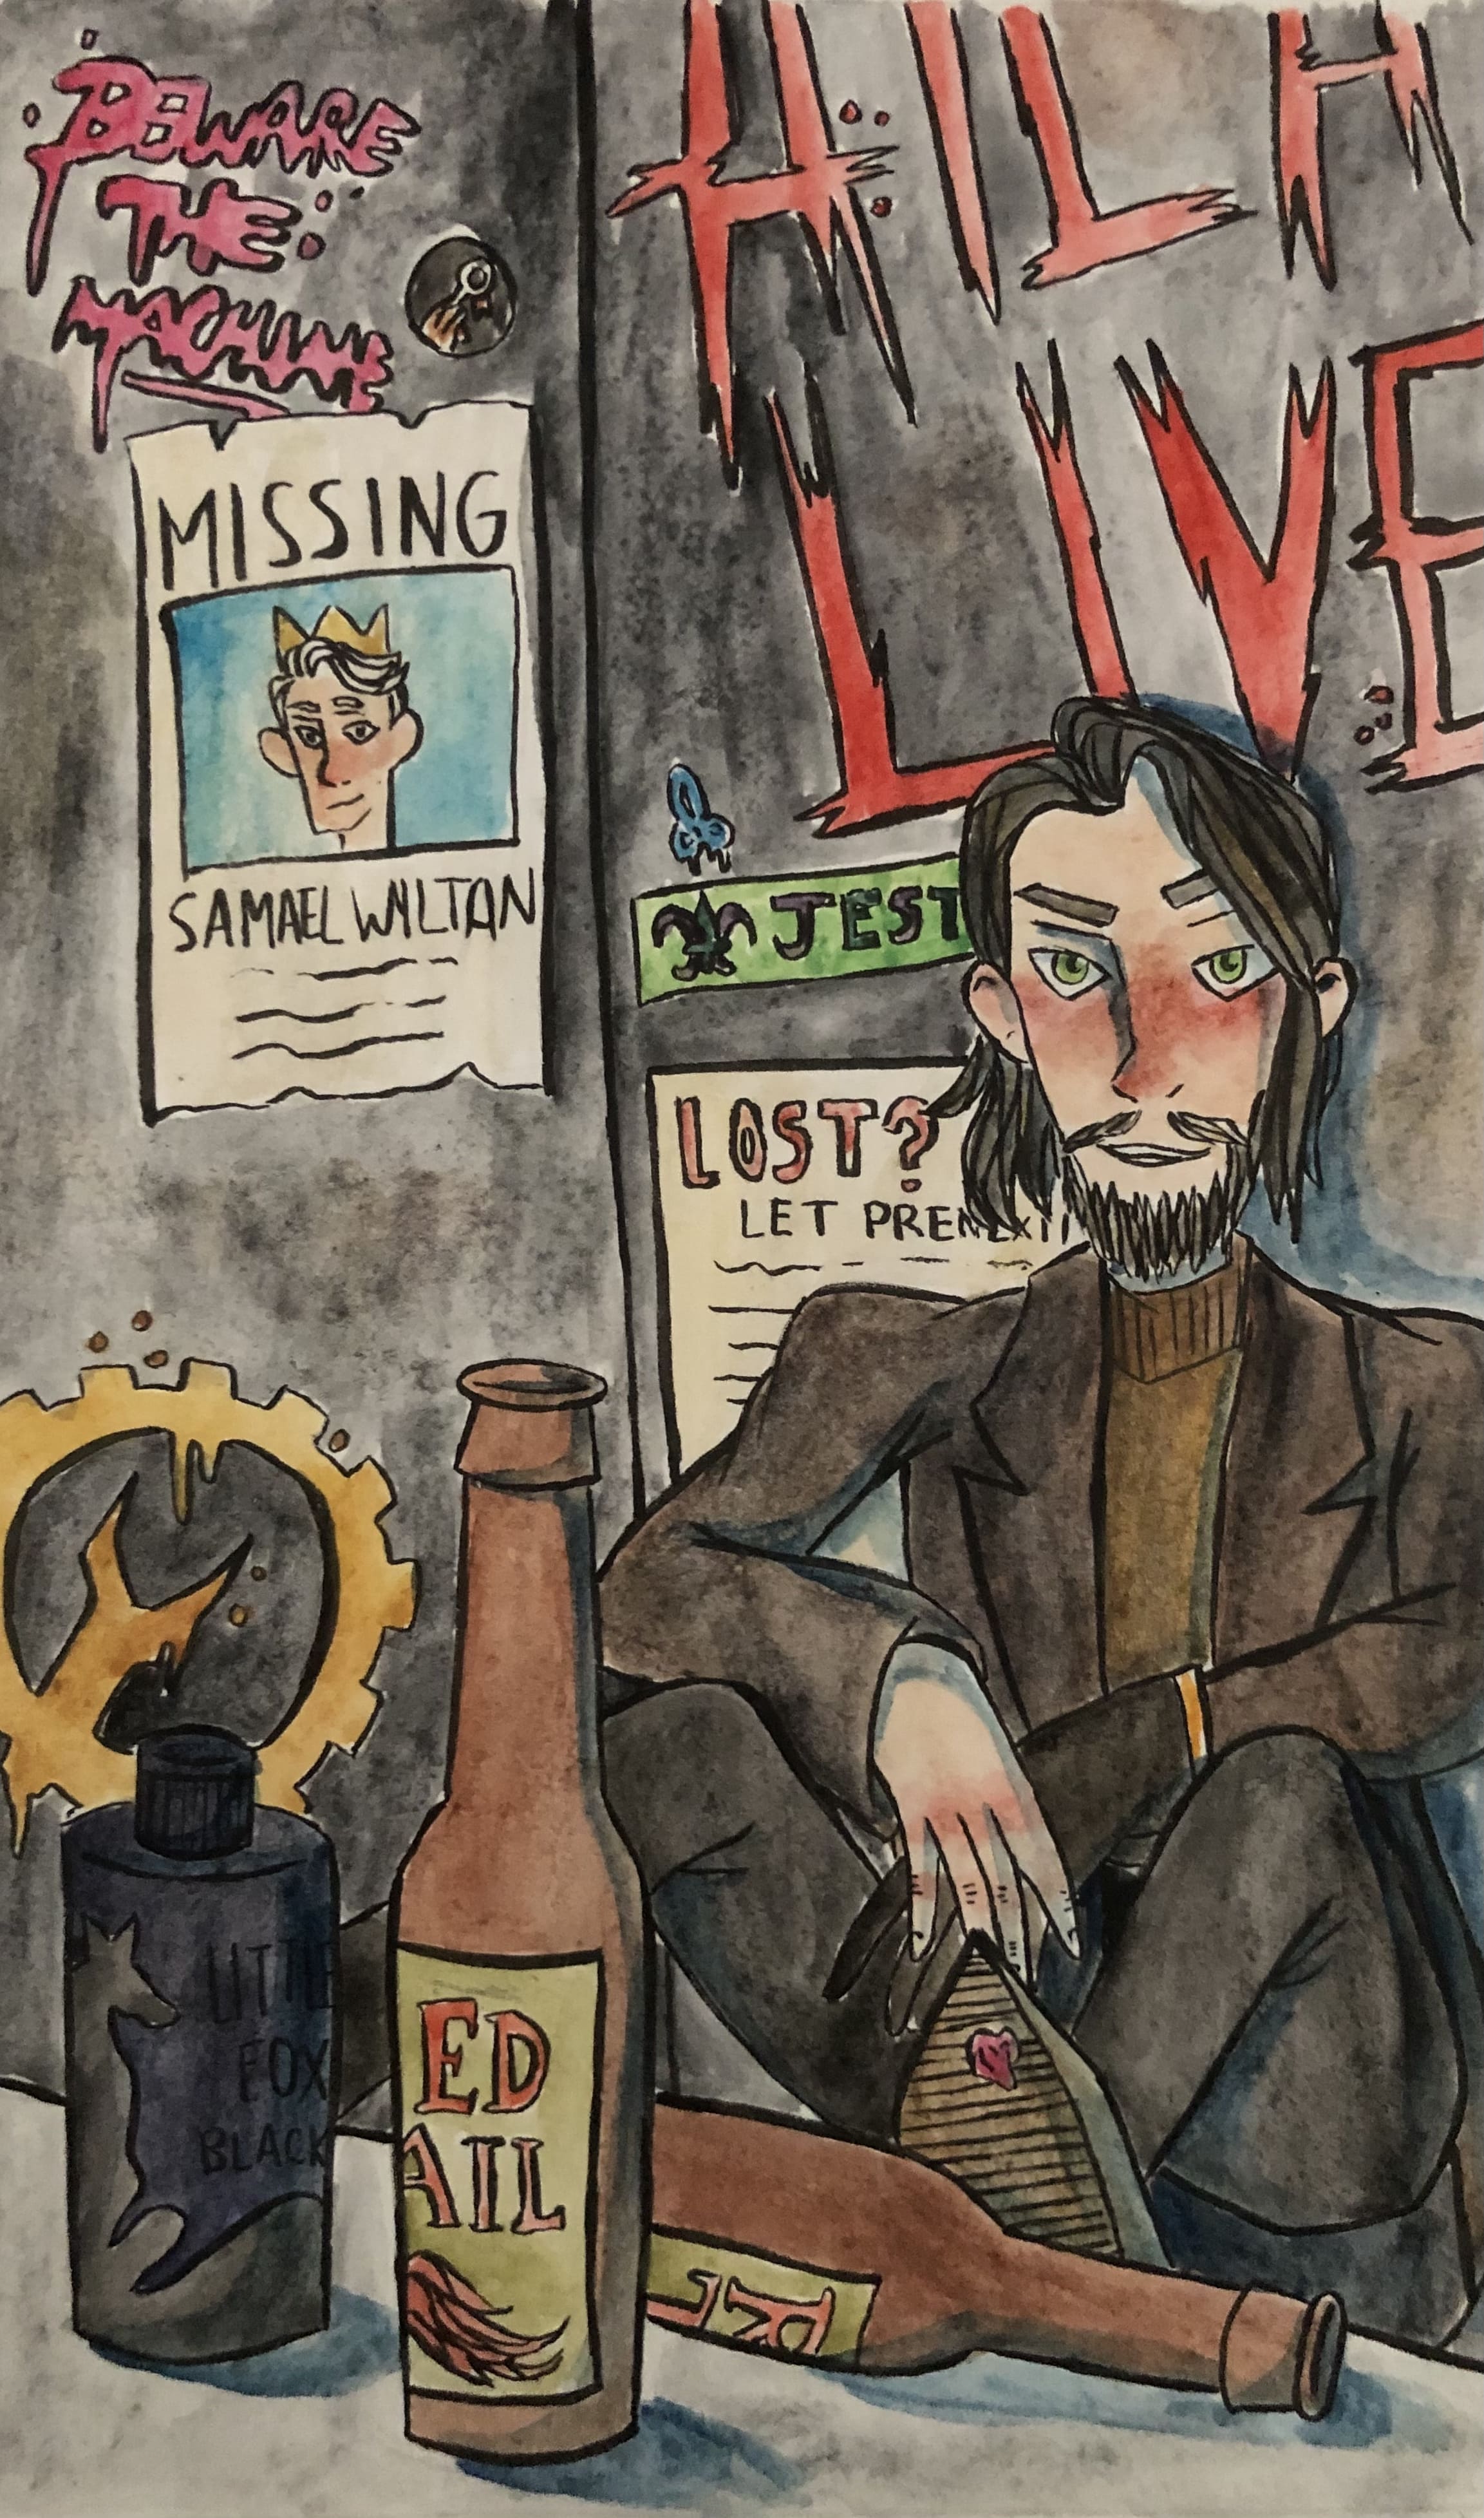 BEWARE
THE
MACHINE
LIVE
MISSING
SAMAEL WYLTON
JEST
LOST?
LET
LITTLE
FOX
BLACK
ED
AIL